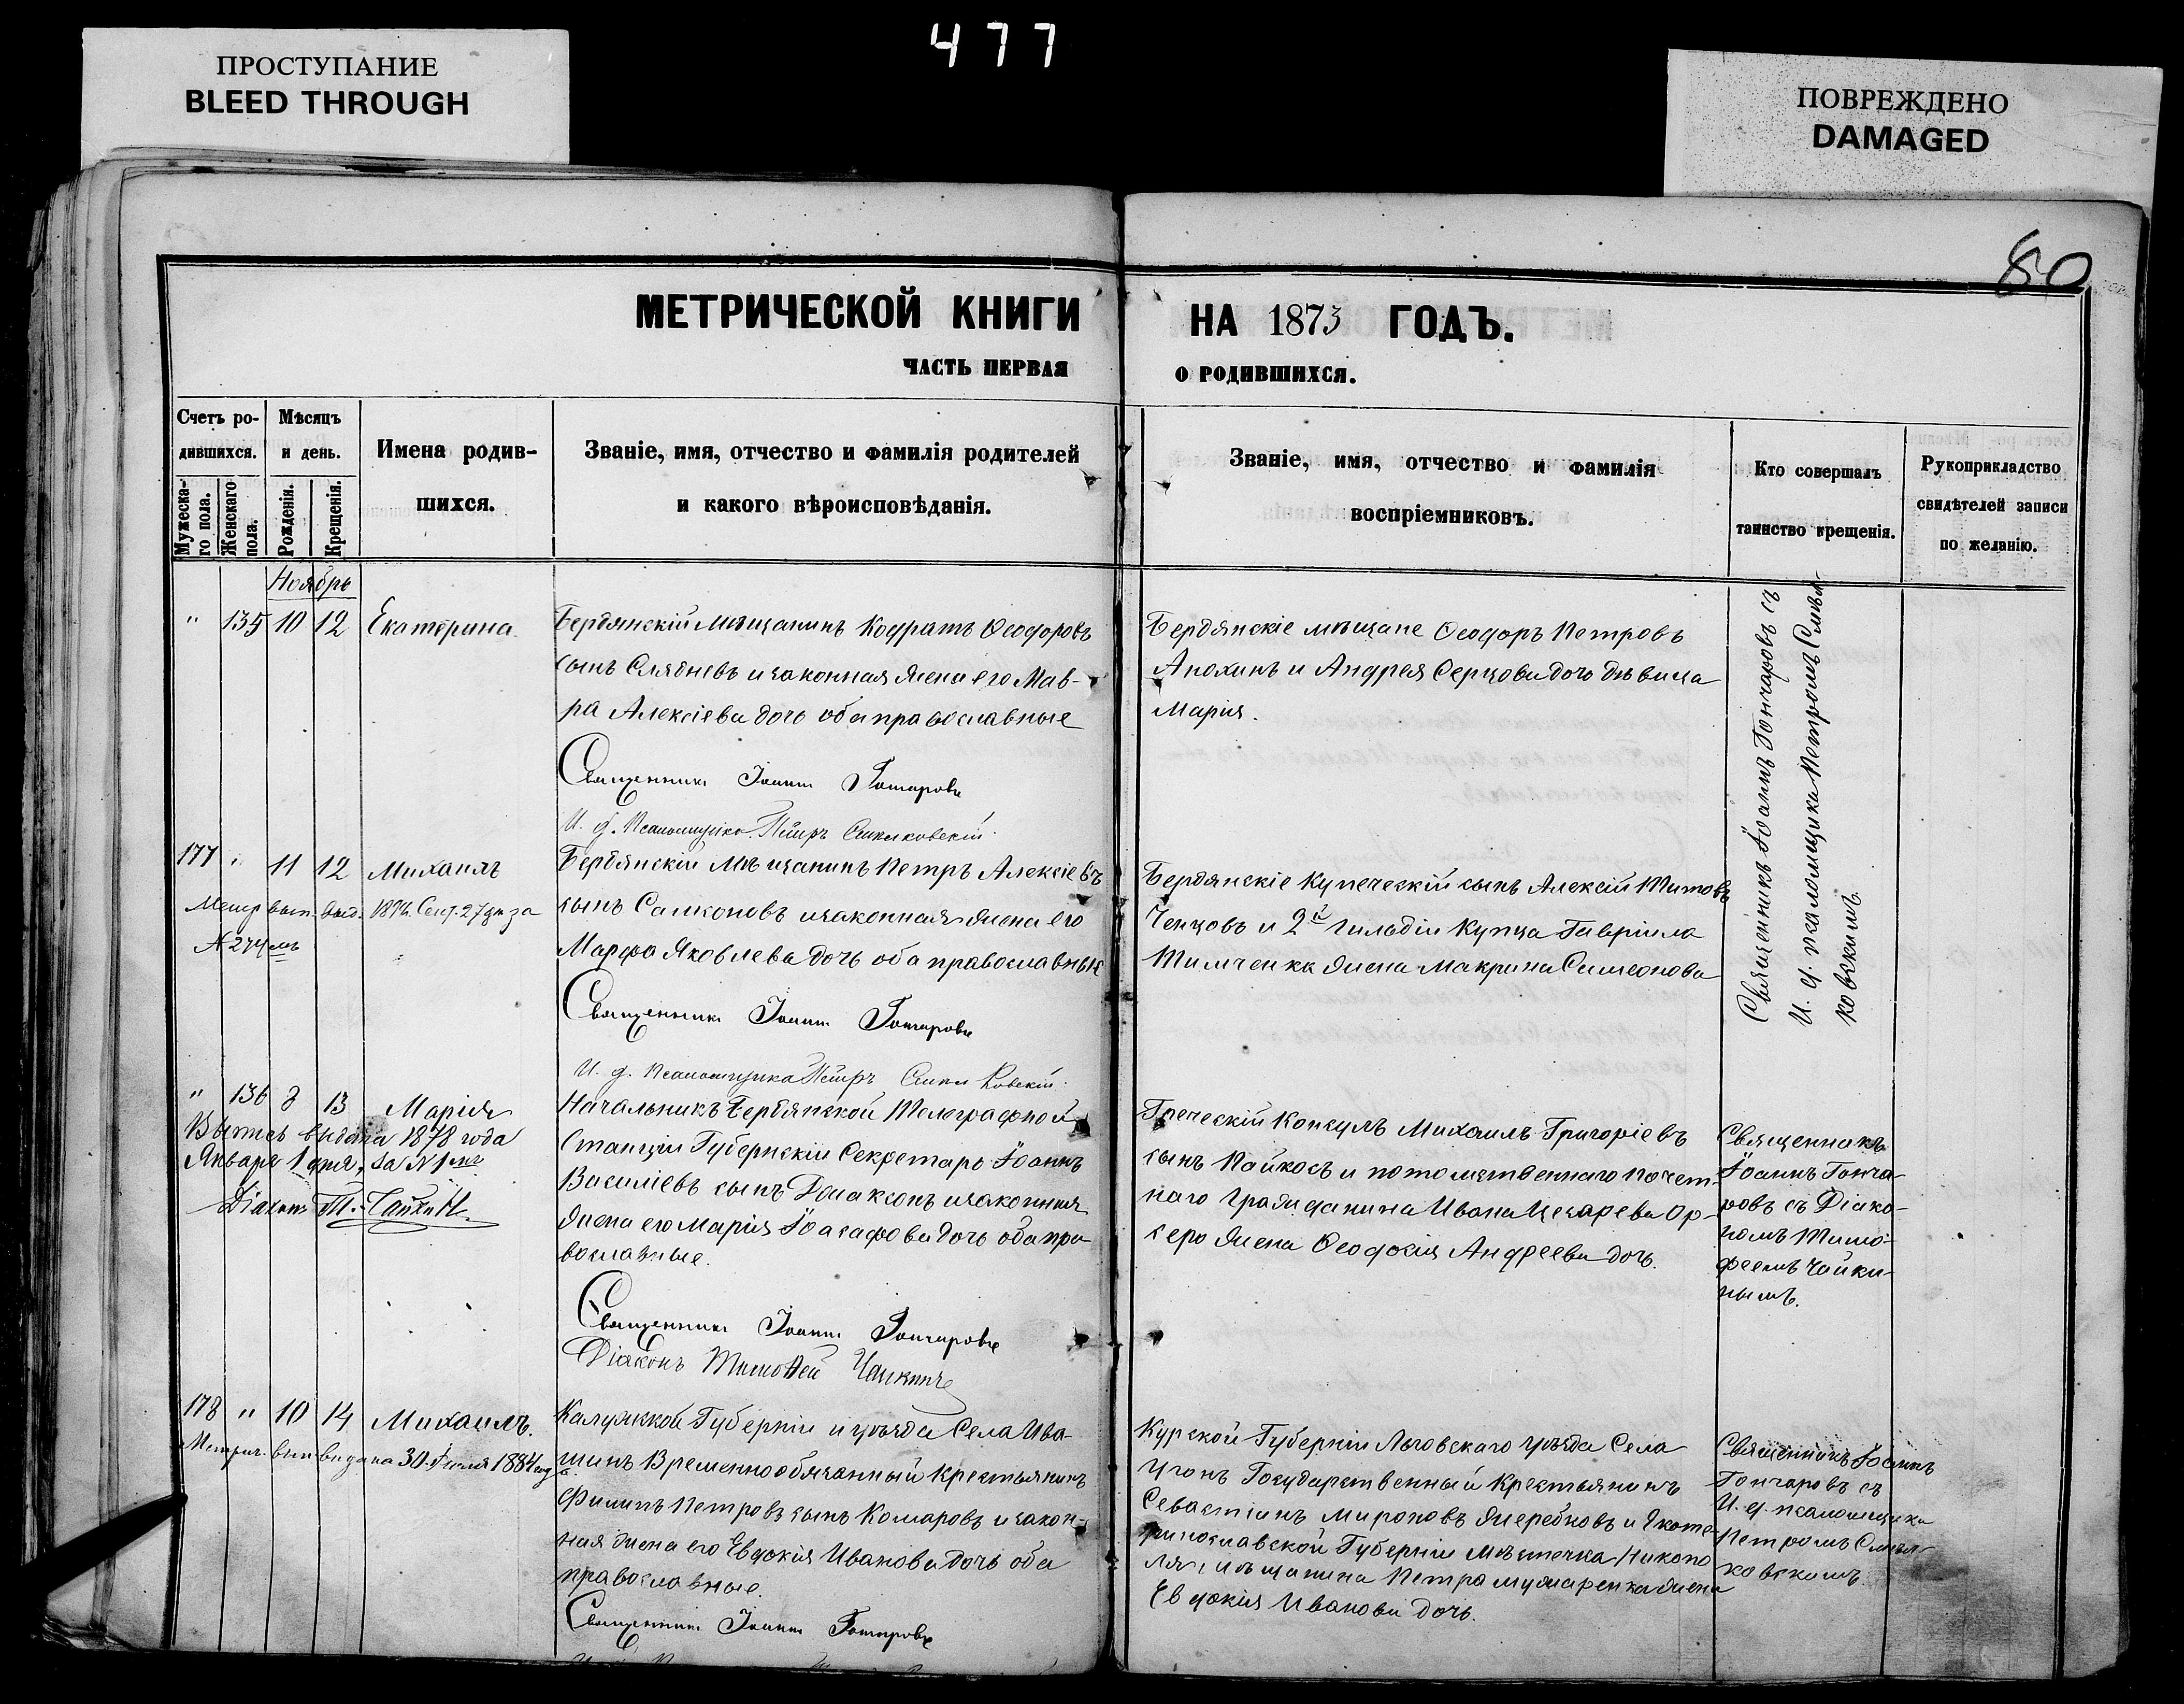 477
ПРОСТУПАНИЕ
BLEED THROUGH
ПОВРЕЖДЕНО
DAMAGED
80
МЕТРИЧЕСКОЙ КНИГИ НА 1873 ГОДЪ.
ЧАСТЬ ПЕРВАЯ О РОДИВШИХСЯ.
Счетъ ро-
дившихся.
Мужеска-
го пола.
Женскаго
пола.
Мѣсяцъ
и день.
Рожденія.
Крещенія.
Имена родив-
шихся.
Званіе, имя, отчество и фамилія родителей
и какого вѣроисповѣданія.
Званіе, имя, отчество и фамилія
воспріемниковъ.
Кто совершалъ
таинство крещенія.
Рукоприкладство
свидѣтелей записи
по желанію.
Ноябрь
" 135 10 12 Екатерина
Бердянскій Мѣщанинъ Кодратъ Ѳеодоровъ
сынъ и законная жена его Мав-
ра Алексіева дочь оба православные
Священникъ Іоаннъ Гончаровъ
И. д. Псаломщика Петръ
Бердянскіе мѣщане Ѳеодоръ Петровъ
Анохинъ и Андрея Серцова дочь дѣвица
Марія.
Священникъ Іоаннъ Гончаровъ съ
И. д. псаломщика Петромъ
ковскимъ
177 " 11 12 Михаилъ
Метр. вып. выд. Сент. 27 дн за
№ 274мъ
Бердянскій Мѣщанинъ Петръ Алексіевъ
сынъ и законная жена его
Марфа Яковлева дочь оба православные
Священникъ Іоаннъ Гончаровъ
И. д. Псаломщика Петръ
Бердянскіе Купеческій сынъ Алексій Титовъ
Ченцовъ и 2й гильдіи Купца Гавріила
Тимченка жена Макрина Симеонова
" 136 8 13 Марія
Выпись выдана 1878 года
Января 1 дня, за №1мъ
Діаконъ Т. Чайкинъ
Начальникъ Бердянской Телеграфной
Станціи Губернскій Секретарь Іоаннъ
Василіевъ сынъ и законная
жена его Марія Іоасафова дочь оба пра-
вославные.
Священникъ Іоаннъ Гончаровъ
Діаконъ Тимоѳей Чайкинъ
Греческій Консулъ Михаилъ Григоріевъ
сынъ Пайкосъ и потомственнаго почет-
наго гражданина Ивана Цезарева Ор-
серо жена Ѳеодосія Андреева дочь.
Священникъ
Іоаннъ Гонча-
ровъ съ Діако-
номъ Тимо-
феемъ Чайки-
нымъ.
178 " 10 14 Михаилъ.
Метрич. вып. выдана 30 Іюля 1884 год
Калужской Губерніи и уѣзда Села Ива-
шинъ Временнообязанный Крестьянинъ
Филипъ Петровъ сынъ Комаровъ и закон-
ная жена его Евдокія Иванова дочь оба
православные.
Священникъ Іоаннъ Гончаровъ
Курской Губерніи Льговскаго уѣзда Села
Угонъ Государственный Крестьянинъ
Севастіанъ Мироновъ Жеребновъ и Екате-
ринославской Губерніи Мѣстечка Никопо
ля, мѣщанина Петра жена
Евдокія Иванова дочь.
Священникъ Іоаннъ
Гончаровъ съ
И. д. псаломщика
Петромъ
ковскимъ.